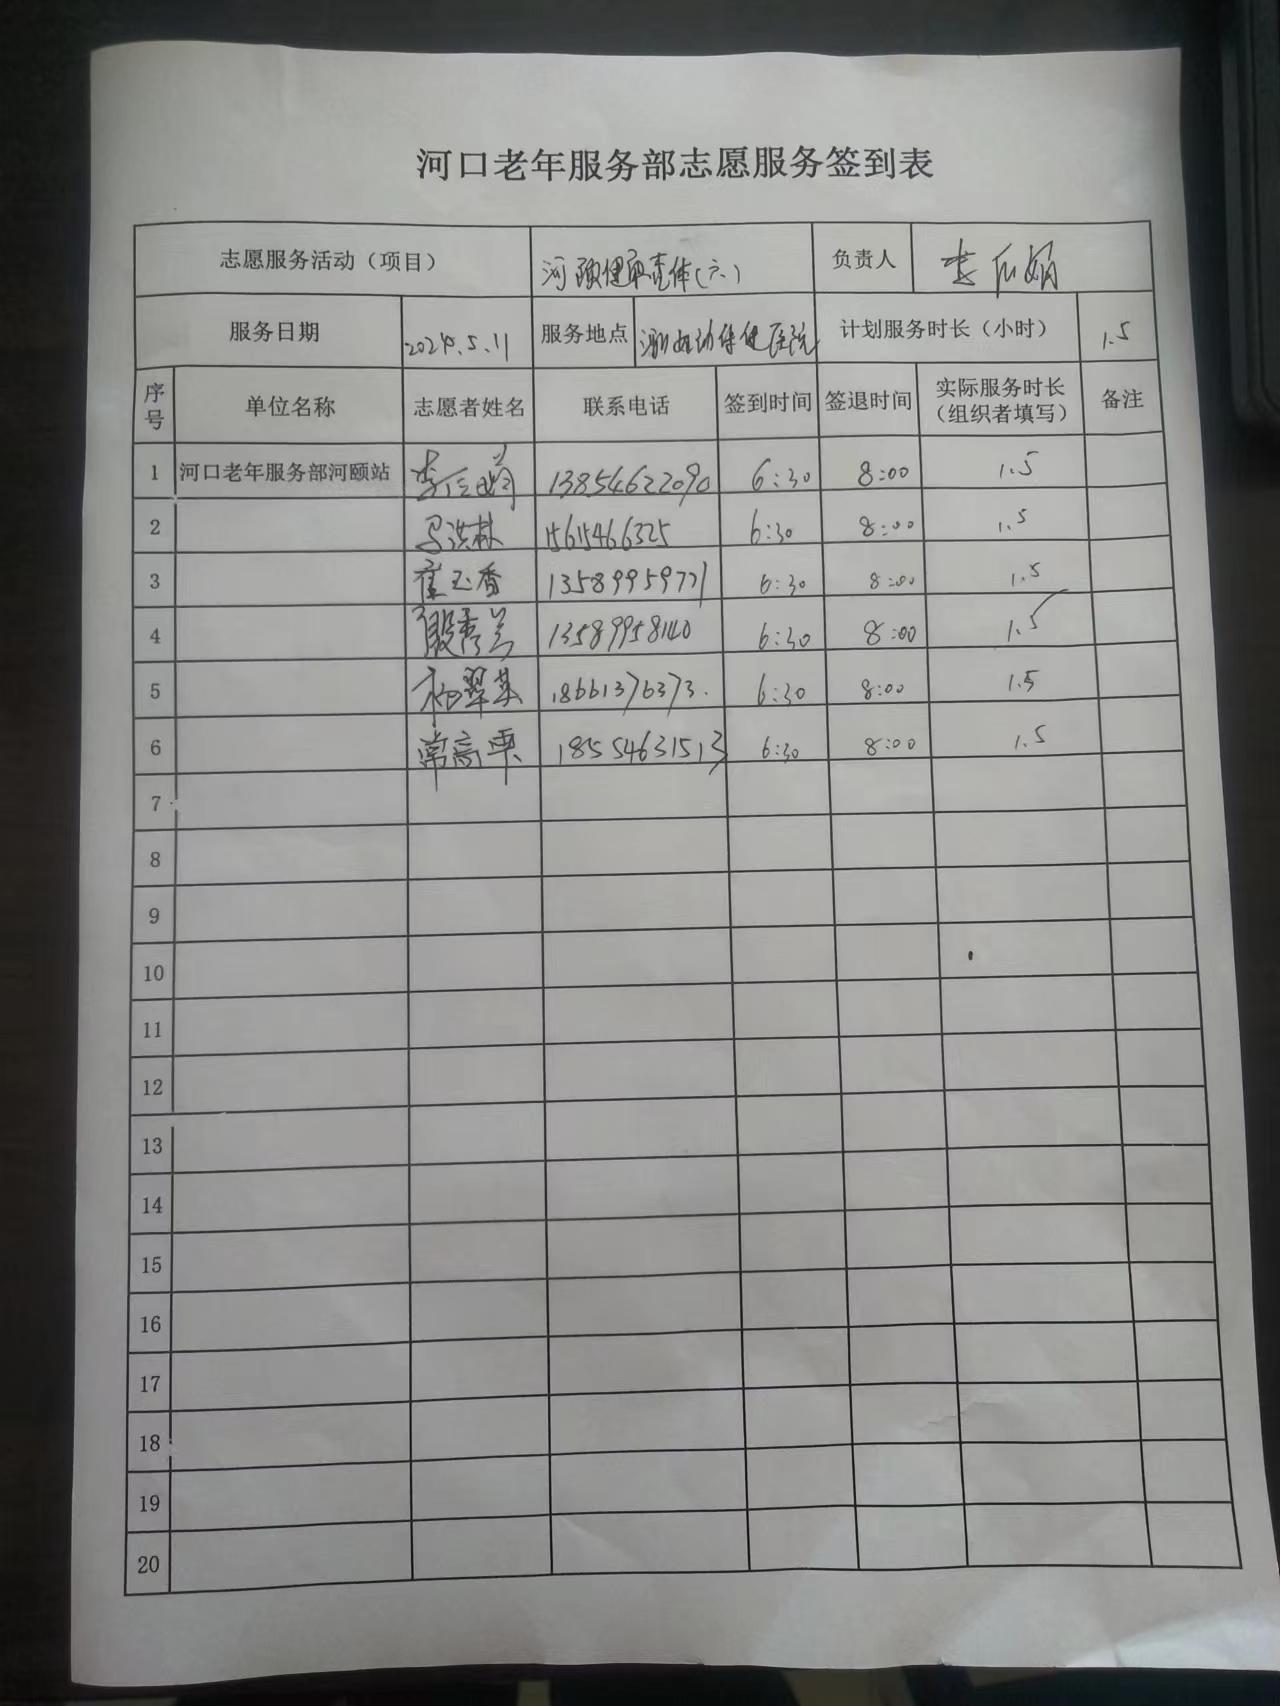 河口老年服务部志愿服务签到表
志愿服务活动（项目） 河颐健康壹体(六) 负责人 李
服务日期 2024.5.11 服务地点 妇幼保健医院 计划服务时长（小时） 1.5
序号 单位名称 志愿者姓名 联系电话 签到时间 签退时间 实际服务时长（组织者填写） 备注
1 河口老年服务部河颐站 李 13854622090 6:30 8:00 1.5
2 马洪林 15615466325 6:30 8:00 1.5
3 崔玉香 13589959771 6:30 8:00 1.5
4 殷秀兰 13589958140 6:30 8:00 1.5
5 杨翠英 18661376373. 6:30 8:00 1.5
6 常高 18554631513 6:30 8:00 1.5
7
8
9
10
11
12
13
14
15
16
17
18
19
20